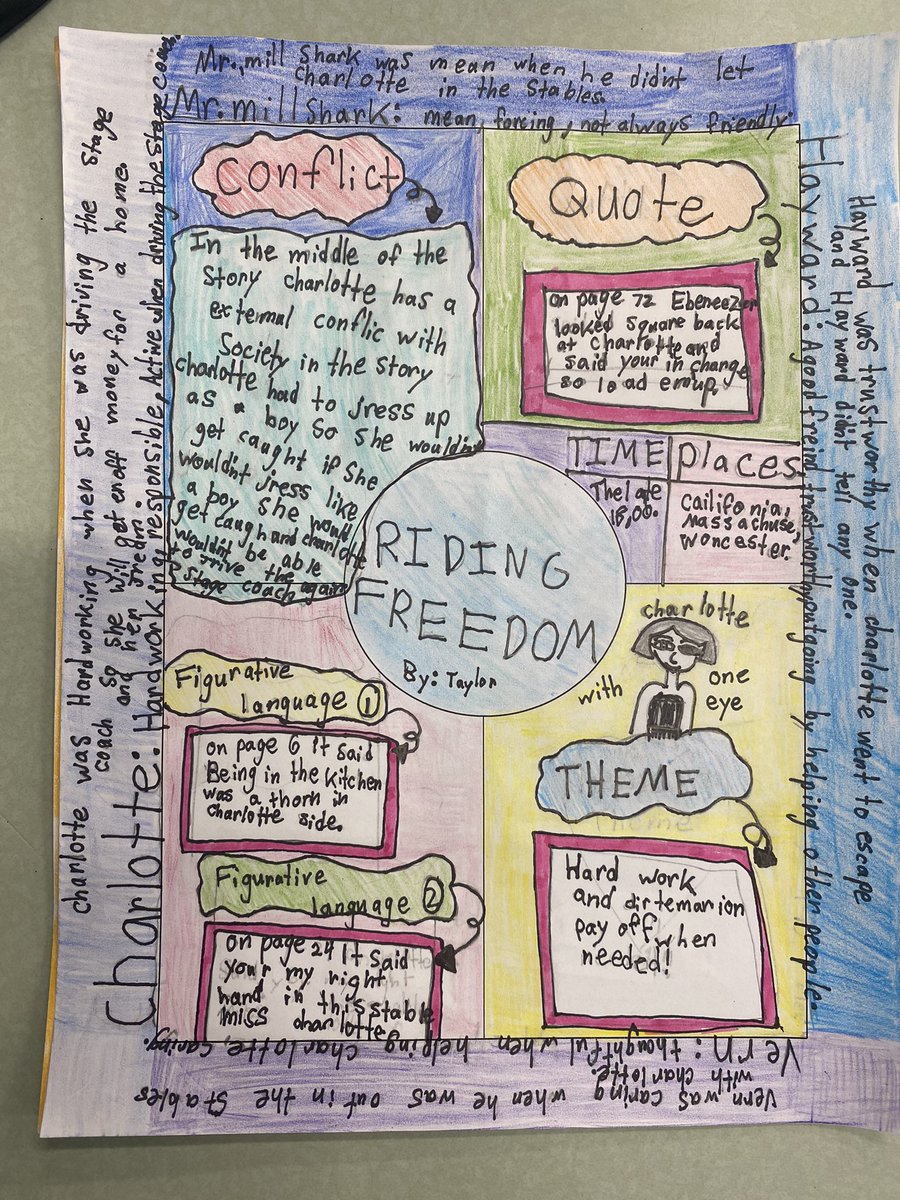 Mr. mill Shark was mean when he didint let
Charlotte in the Stables.
Mr. mill Shark: mean, forcing, not always friendly.
Conflict
In the middle of the
Story charlotte has a
external conflic with
Society in the Story
charlotte had to jress up
as a boy so she wouldint
get caught if she
wouldint jress like
a boy she would
get caught and charlotte
wouldint be able
to drive the
stage coach again
Quote
on page 72 Ebeneezer
looked square back
at charlotte and
said your in charge
so load em up.
TIME
The late
18,00.
places
Cailifonia,
Massachuse,
woncester.
RIDING
FREEDOM
By: Taylor
Figurative
language 1
on page 6 it said
Being in the kitchen
was a thorn in
charlotte side.
Figurative
language 2
on page 24 It said
your my right
hand in this stable
miss charlotte
charlotte
with one
eye
THEME
Hard work
and dirtemarion
pay off when
needed!
charlotte was Hardworking when she was driving the stage
coach so she will get enoff money for a home.
and her dream.
Charlotte: Hardworking, responsible, Active when driving the stage coach.
Hayward was trustworthy when charlotte went to escape
and Hayward didnt tell any one.
Hayward: A good friend, trustworthy, outgoing by helping other people.
Vern: thoughtful when helping charlotte, caring.
Vern was caring when he was out in the stables
with charlotte.